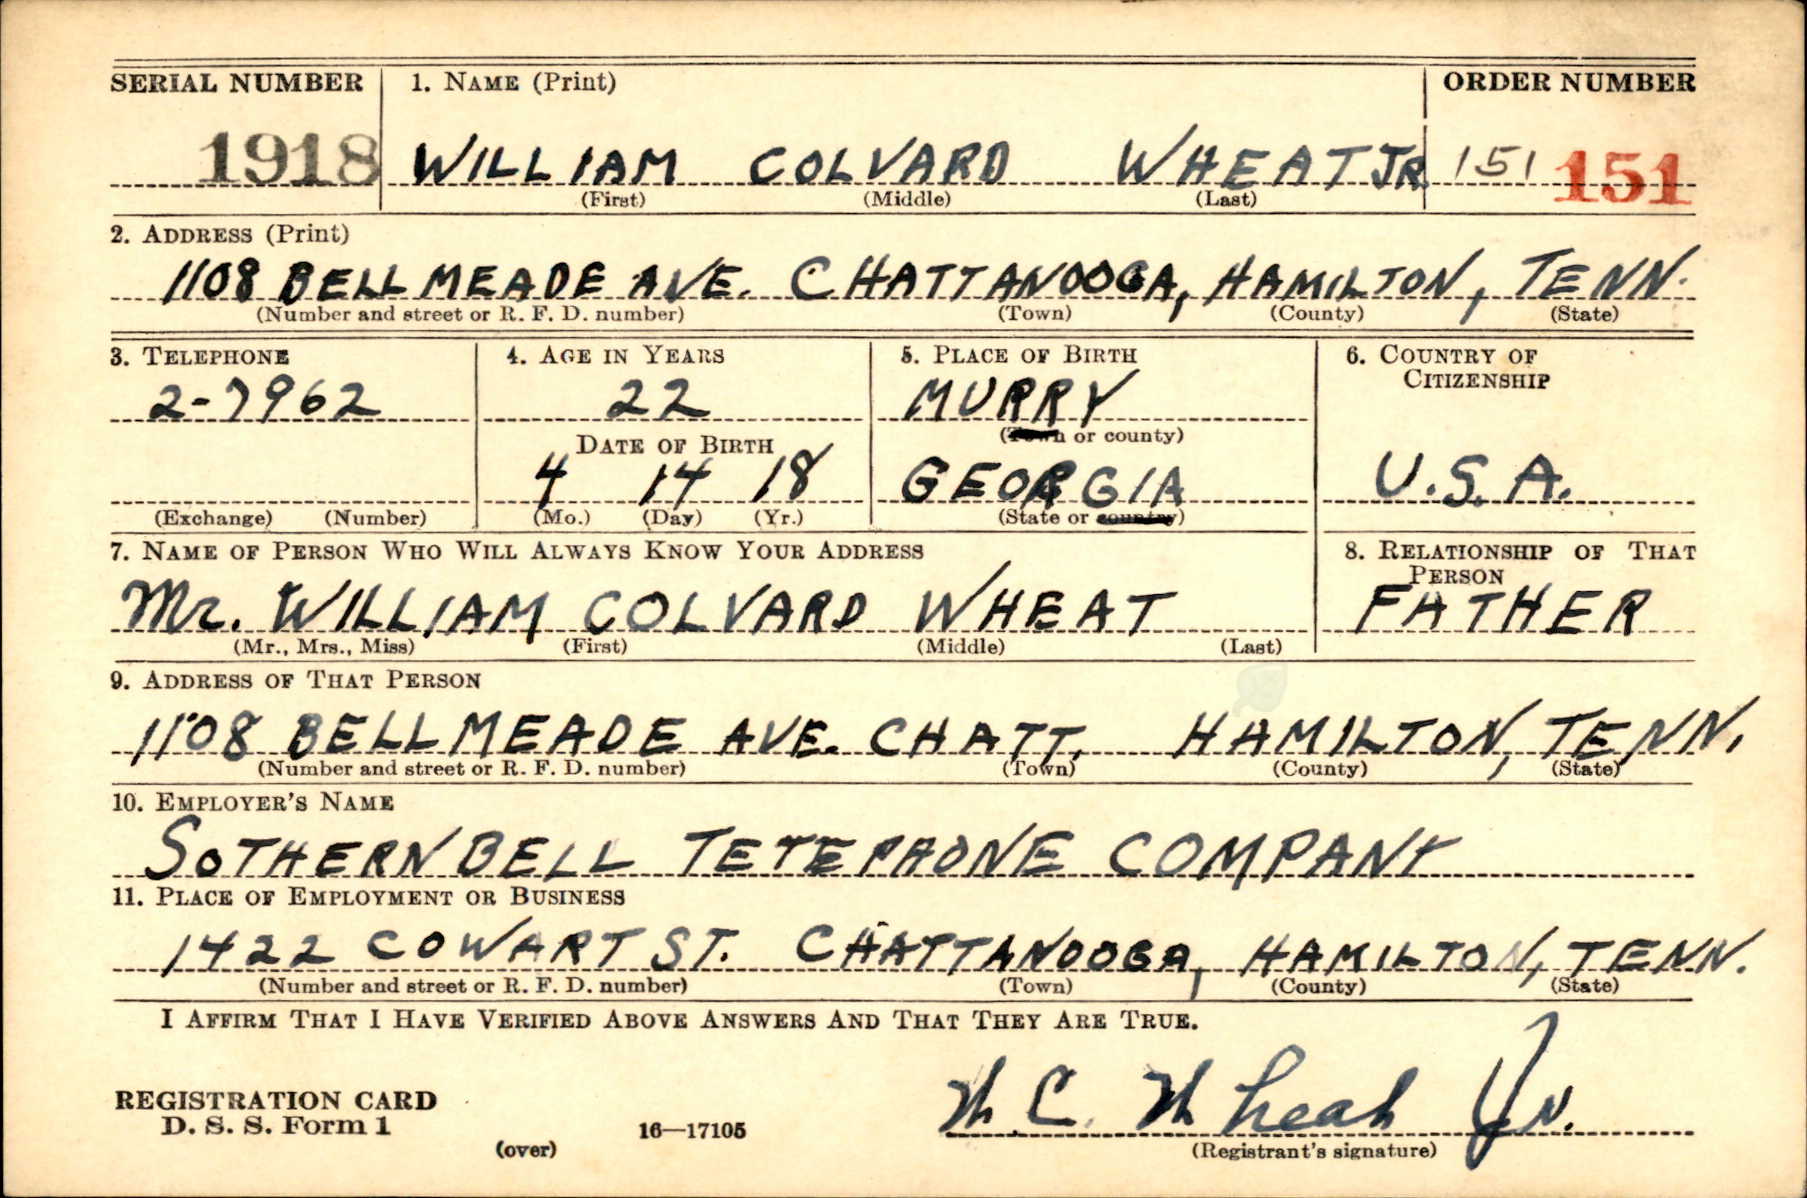 SERIAL NUMBER 1. NAME (Print) ORDER NUMBER
1918 WILLIAM COLVARD WHEAT JR. 151 151
(First) (Middle) (Last)
2. ADDRESS (Print)
1108 BELL MEADE AVE. CHATTANOOGA, HAMILTON, TENN.
(Number and street or R. F. D. number) (Town) (County) (State)
3. TELEPHONE 4. AGE IN YEARS 5. PLACE OF BIRTH 6. COUNTRY OF
CITIZENSHIP
2-7962 22 MURRY
DATE OF BIRTH (Town or county)
4 14 18 GEORGIA U.S.A.
(Exchange) (Number) (Mo.) (Day) (Yr.) (State or country)
7. NAME OF PERSON WHO WILL ALWAYS KNOW YOUR ADDRESS 8. RELATIONSHIP OF THAT
PERSON
Mr. WILLIAM COLVARD WHEAT FATHER
(Mr., Mrs., Miss) (First) (Middle) (Last)
9. ADDRESS OF THAT PERSON
1108 BELL MEADE AVE. CHATT. HAMILTON, TENN.
(Number and street or R. F. D. number) (Town) (County) (State)
10. EMPLOYER'S NAME
SOTHERN BELL TETEPHONE COMPANY
11. PLACE OF EMPLOYMENT OR BUSINESS
1422 COWART ST. CHATTANOOGA, HAMILTON, TENN.
(Number and street or R. F. D. number) (Town) (County) (State)
I AFFIRM THAT I HAVE VERIFIED ABOVE ANSWERS AND THAT THEY ARE TRUE.
W. C. Wheat Jr.
REGISTRATION CARD
D. S. S. Form 1
(over) 16—17105 (Registrant's signature)